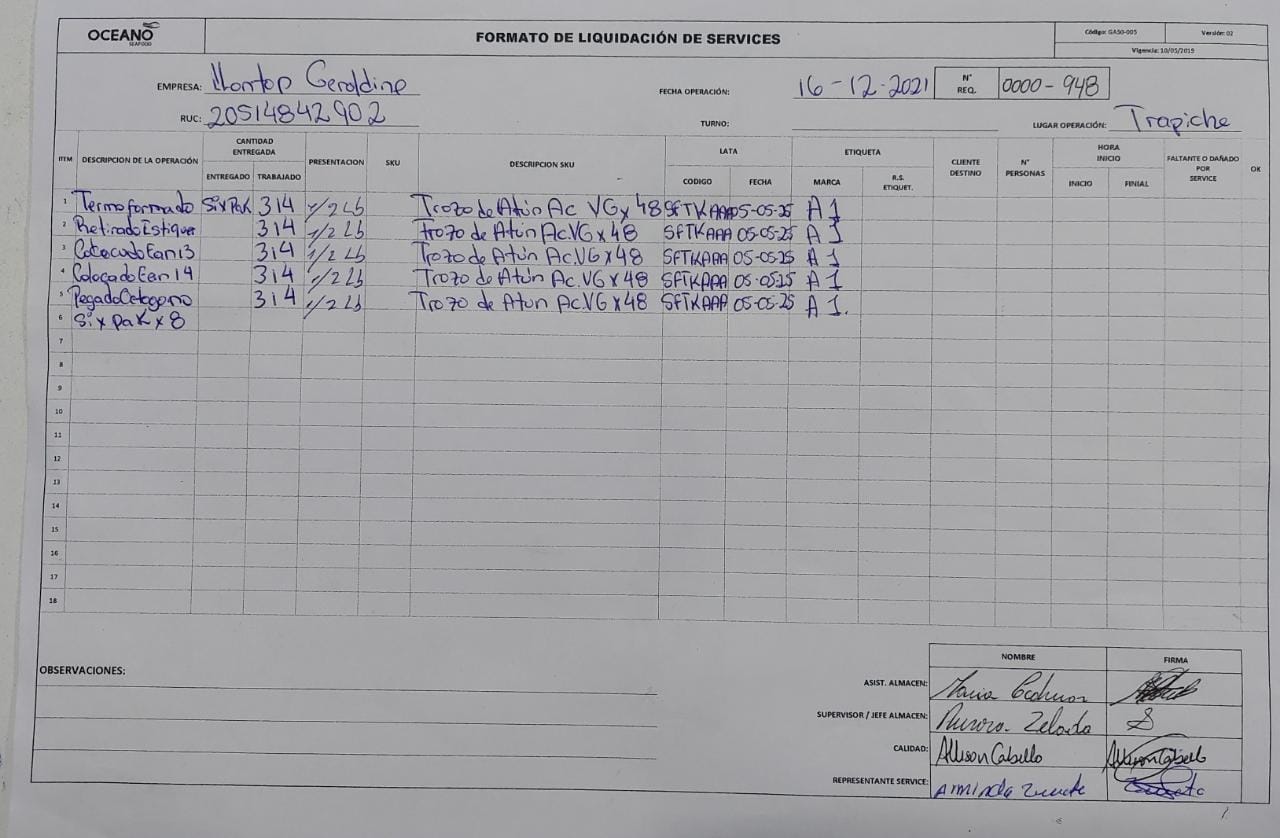 OCEANO
SEAFOOD
FORMATO DE LIQUIDACIÓN DE SERVICES
Código: GASO-005 Versión: 02
Vigencia: 10/05/2019
EMPRESA: Llontop Geraldine
FECHA OPERACIÓN: 16-12-2021
N° REQ. 0000-948
RUC: 20514842902
TURNO:
LUGAR OPERACIÓN: Trapiche
ITEM DESCRIPCION DE LA OPERACIÓN CANTIDAD ENTREGADA PRESENTACION SKU DESCRIPCION SKU LATA ETIQUETA CLIENTE DESTINO N° PERSONAS HORA INICIO FALTANTE O DAÑADO POR SERVICE OK
ENTREGADO TRABAJADO CODIGO FECHA MARCA R.S. ETIQUET. INICIO FINIAL
1 Termoformado SixPak 314 1/2 Lb Trozo de Atún Ac VG x 48 SFTKAAA 05-05-25 A1
2 Retirado Estique 314 1/2 Lb Trozo de Atún Ac.VG x 48 SFTKAAA 05-05-25 A1
3 Colocado Ean13 314 1/2 Lb Trozo de Atún Ac.VG x 48 SFTKAAA 05-05-25 A1
4 Colocado Ean14 314 1/2 Lb Trozo de Atún Ac.VG x 48 SFTKAAA 05-05-25 A1
5 Pegado 314 1/2 Lb Trozo de Atún Ac.VG x 48 SFTKAAA 05-05-25 A1.
6 Six pak x 8
7
8
9
10
11
12
13
14
15
16
17
18
OBSERVACIONES:
NOMBRE FIRMA
ASIST. ALMACEN:
SUPERVISOR / JEFE ALMACEN: Aurora
CALIDAD: Allison Cabello Allison Cabello
REPRESENTANTE SERVICE: Arminda